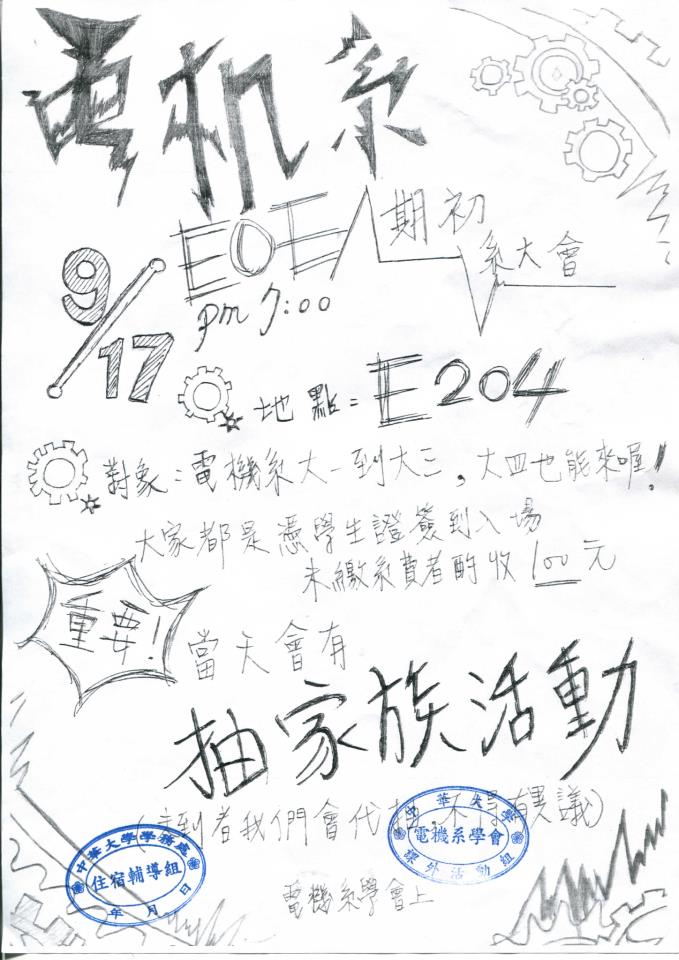 電机系
EOE 期初
系大會
9/17
pm 7:00
地點:E204
對象:電機系大一到大三,大四也能來喔!
大家都是憑學生證簽到入場
未繳系費者酌收100元
重要!
當天會有
抽家族活動
(未到者我們會代抽,不得有異議)
中華大學學務處
住宿輔導組
年 月 日
中華大學
電機系學會
課外活動組
電機系學會上